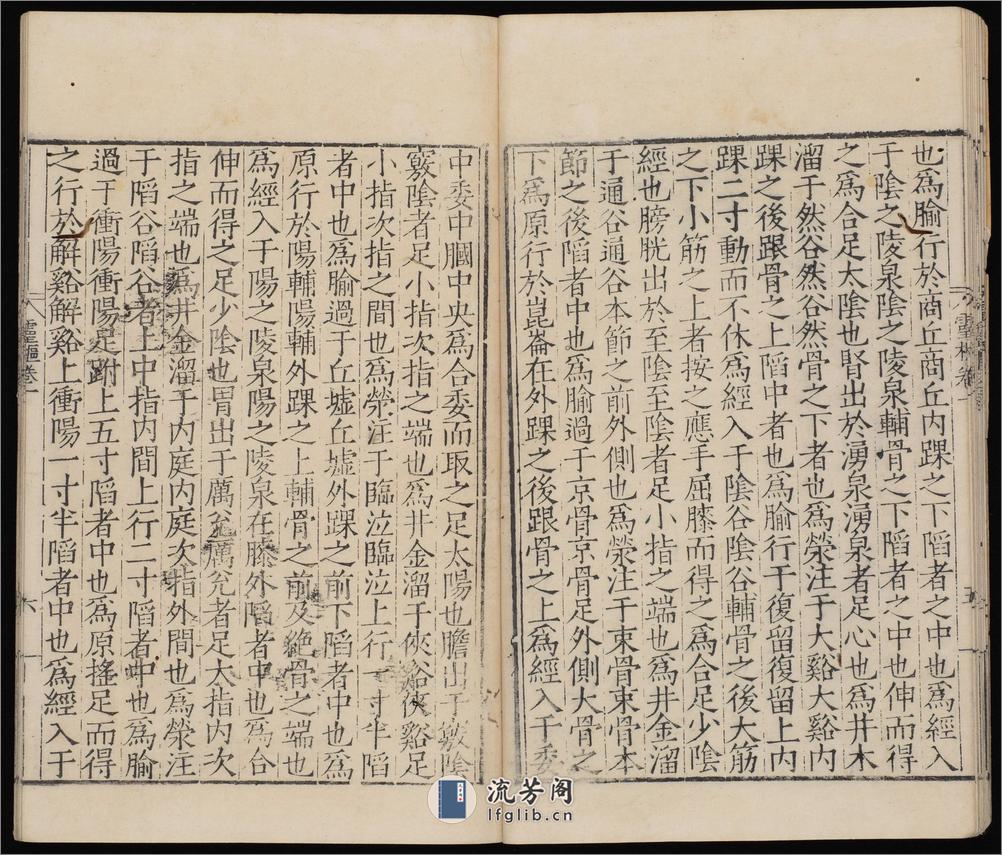 也爲腧行於商丘商丘内踝之下陷者之中也爲經入
于陰之陵泉陰之陵泉輔骨之下陷者之中也伸而得
之爲合足太陰也腎出於湧泉湧泉者足心也爲井木
溜于然谷然谷然骨之下者也爲滎注于大谿大谿内
踝之後跟骨之上陷中者也爲腧行于復留復留上内
踝二寸動而不休爲經入于陰谷陰谷輔骨之後大筋
之下小筋之上者按之應手屈膝而得之爲合足少陰
經也膀胱出於至陰至陰者足小指之端也爲井金溜
于通谷通谷本節之前外側也爲滎注于束骨束骨本
節之後陷者中也爲腧過于京骨京骨足外側大骨之
下爲原行於崑崙在外踝之後跟骨之上爲經入于委
中委中膕中央爲合委而取之足太陽也膽出于竅陰
竅陰者足小指次指之端也爲井金溜于俠谿俠谿足
小指次指之間也爲滎注于臨泣臨泣上行一寸半陷
者中也爲腧過于丘墟丘墟外踝之前下陷者中也爲
原行於陽輔陽輔外踝之上輔骨之前及絶骨之端也
爲經入于陽之陵泉陽之陵泉在膝外陷者中也爲合
伸而得之足少陽也胃出于厲兊厲兊者足大指内次
指之端也爲井金溜于内庭内庭次指外間也爲滎注
于陷谷陷谷者上中指内間上行二寸陷者中也爲腧
過于衝陽衝陽足跗上五寸陷者中也爲原搖足而得
之行於解谿解谿上衝陽一寸半陷者中也爲經入于
靈樞卷一
五
靈樞卷一
六
流芳阁
lfglib.cn